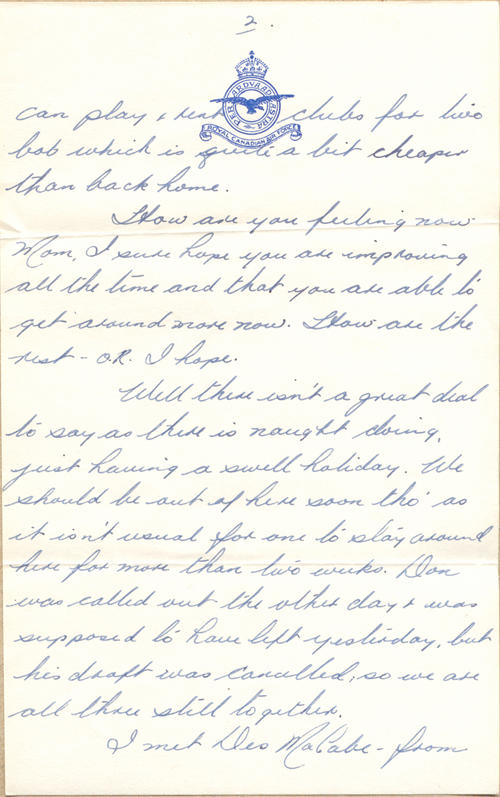 2.
PER ARDUA AD ASTRA
ROYAL CANADIAN AIR FORCE
can play & rent clubs for two
bob which is quite a bit cheaper
than back home.
How are you feeling now
Mom, I sure hope you are improving
all the time and that you are able to
get around more now. How are the
rest - O.K. I hope.
Well there isn't a great deal
to say as there is naught doing,
just having a swell holiday. We
should be out of here soon tho' as
it isn't usual for one to stay around
here for more than two weeks. Don
was called out the other day & was
supposed to have left yesterday, but
his draft was cancelled, so we are
all three still together.
I met Des McCabe - from